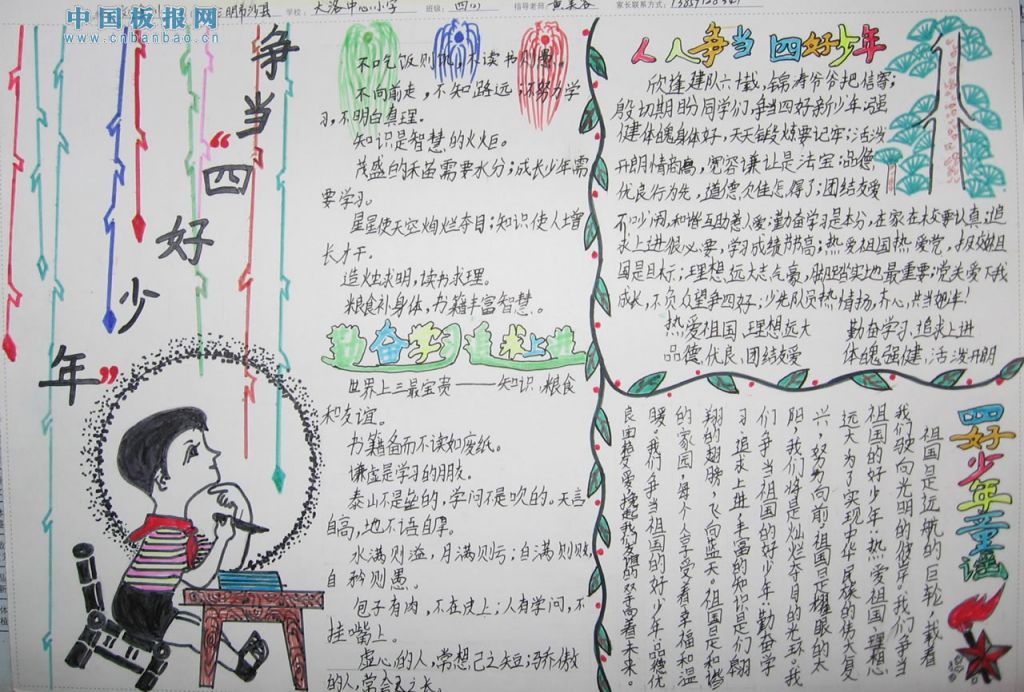 中国板报网
www.cnbanbao.cn
明市沙县 学校：大洛中心小学 班级：四(1) 指导老师： 家长联系方式：
争当“四好少年”
不吃饭则饥，不读书则愚。
不向前走，不知路远；不努力学
习，不明白真理。
知识是智慧的火炬。
茂盛的禾苗需要水分；成长少年需
要学习。
星星使天空绚烂夺目；知识使人增
长才干。
造烛求明，读书求理。
粮食补身体，书籍丰富智慧。
勤奋学习追求上进
世界上三最宝贵——知识、粮食
和友谊。
书籍备而不读如废纸。
谦虚是学习的朋友。
泰山不是垒的，学问不是吹的。天言
自高，地不语自厚。
水满则溢，月满则亏；自满则败，
自矜则愚。
包子有肉，不在皮上；人有学问，不
挂嘴上。
虚心的人，常想己之短；骄傲
的人，常夸己之长。
人人争当四好少年
欣逢建队六十载，锦涛爷爷把信寄；
殷切期盼同学们，争当四好新少年；强
健体魄身体好，天天锻炼要记牢；活泼
开朗情商高，宽容谦让是法宝；品德
优良行为先，道德欠佳怎得了；团结友爱
不吵闹，和谐互助惹人爱；勤奋学习是本分，在家在校要认真；追
求上进很必要，学习成绩节节高；热爱祖国热爱党，报效祖
国是目标；理想远大志气豪，脚踏实地最重要；党关爱下我
成长，不负众望争四好；少先队员热情扬，齐心共当好少年！
热爱祖国、理想远大 勤奋学习、追求上进
品德优良、团结友爱 体魄强健、活泼开朗
四好少年童谣
祖国是远航的巨轮，载着
我们驶向光明的彼岸。我们争当
祖国的好少年，热爱祖国、理想
远大，为了实现中华民族的伟大复
兴，努力向前。祖国是耀眼的太
阳，我们将是灿烂夺目的光环。我
们争当祖国的好少年，勤奋学
习、追求上进，丰富的知识是们翱
翔的翅膀，飞向蓝天。祖国是和谐
的家园，每个人享受着幸福和温
暖，我们争当祖国的好少年，品德优
良、团结友爱，